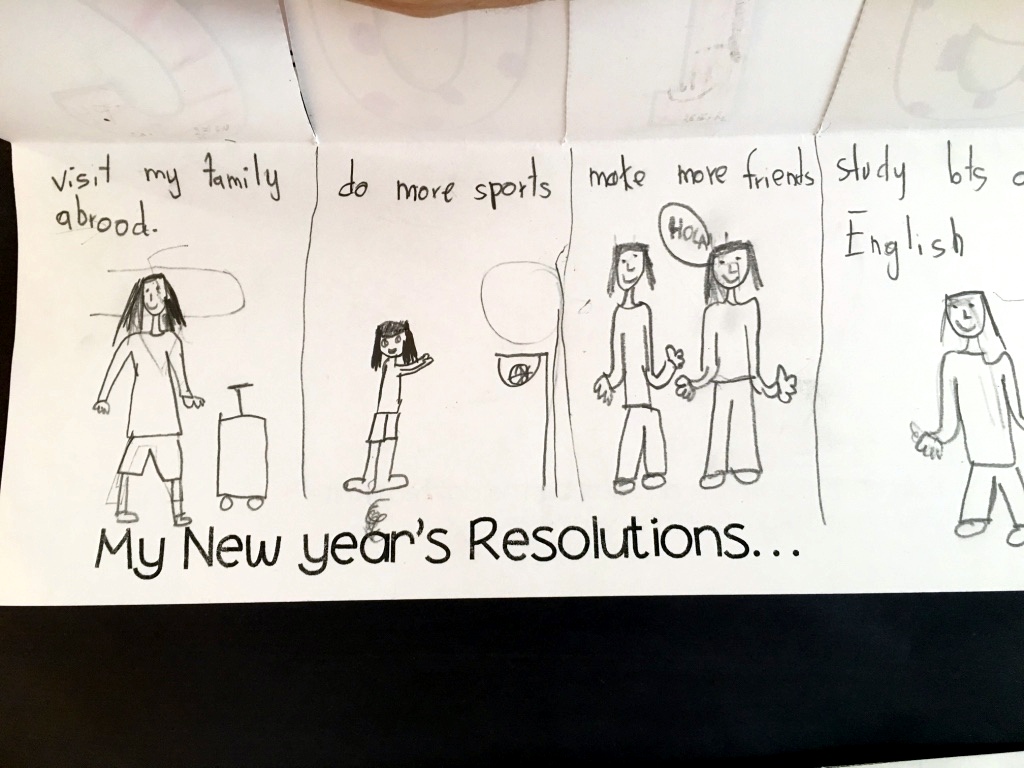 visit my family
abroad.
do more sports
make more friends
HOLA
study lots o
English
My New year's Resolutions...